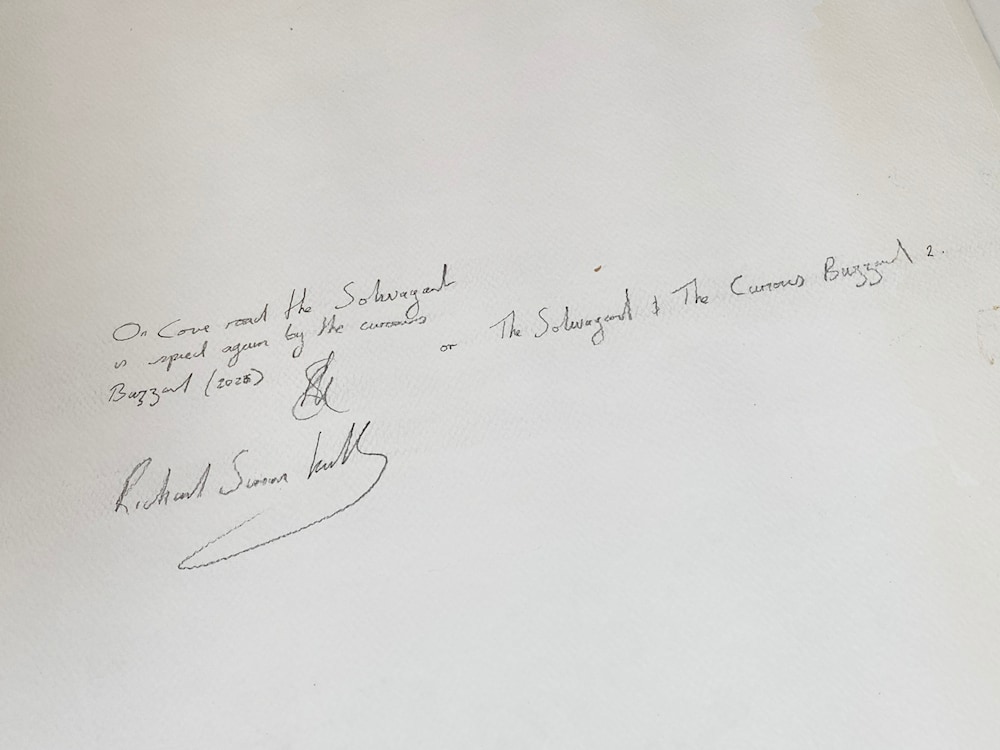 On Cove road the Solwagant
is spied again by the curious
Buzzard (2025)
or The Solwagant & The Curious Buzzard 2.
Richard Simon